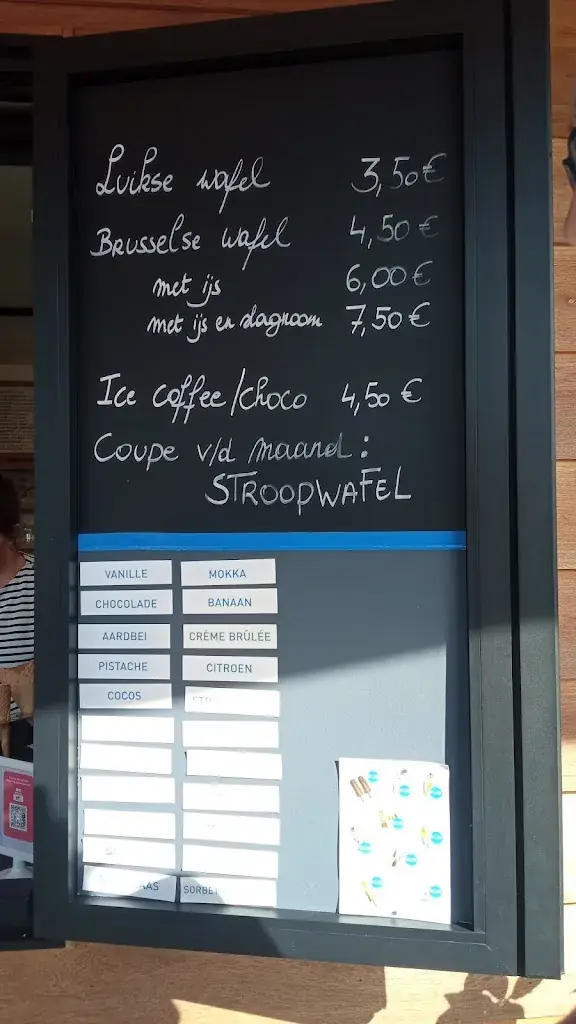 Luikse wafel 3,50 €
Brusselse wafel 4,50 €
met ijs 6,00 €
met ijs en slagroom 7,50 €
Ice coffee/choco 4,50 €
Coupe v/d maand :
STROOPWAFEL
VANILLE MOKKA
CHOCOLADE BANAAN
AARDBEI CRÈME BRÛLÉE
PISTACHE CITROEN
COCOS